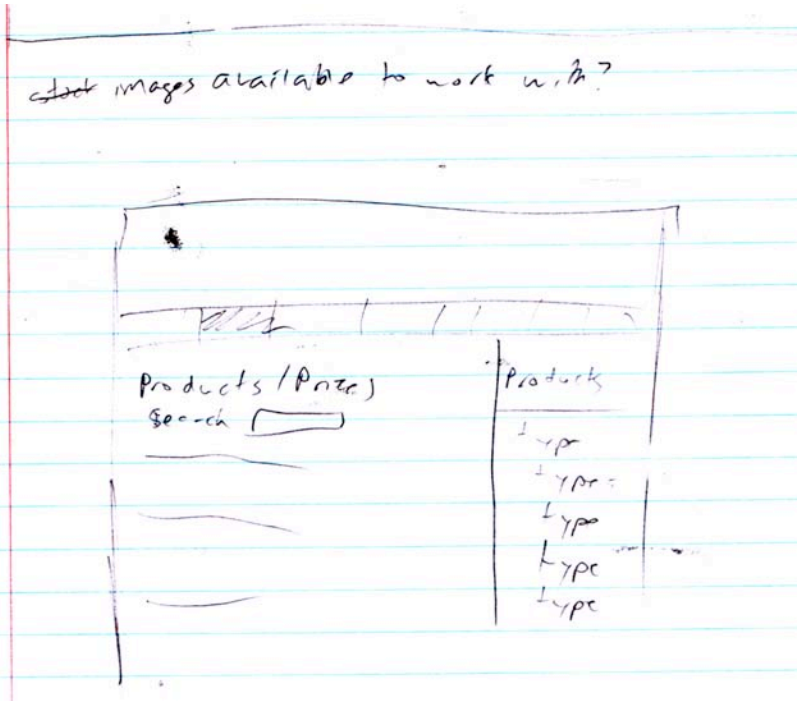 images available to work with?
Products / Prizes
Search
Products
type
type
type
type
type